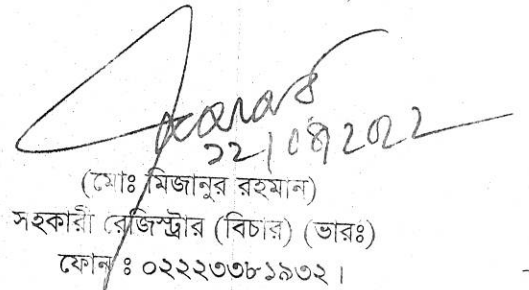 22/08/2022
(মোঃ মিজানুর রহমান)
সহকারী রেজিস্ট্রার (বিচার) (ভারঃ)
ফোন ঃ ০২২২৩৩৮১৯৩২।